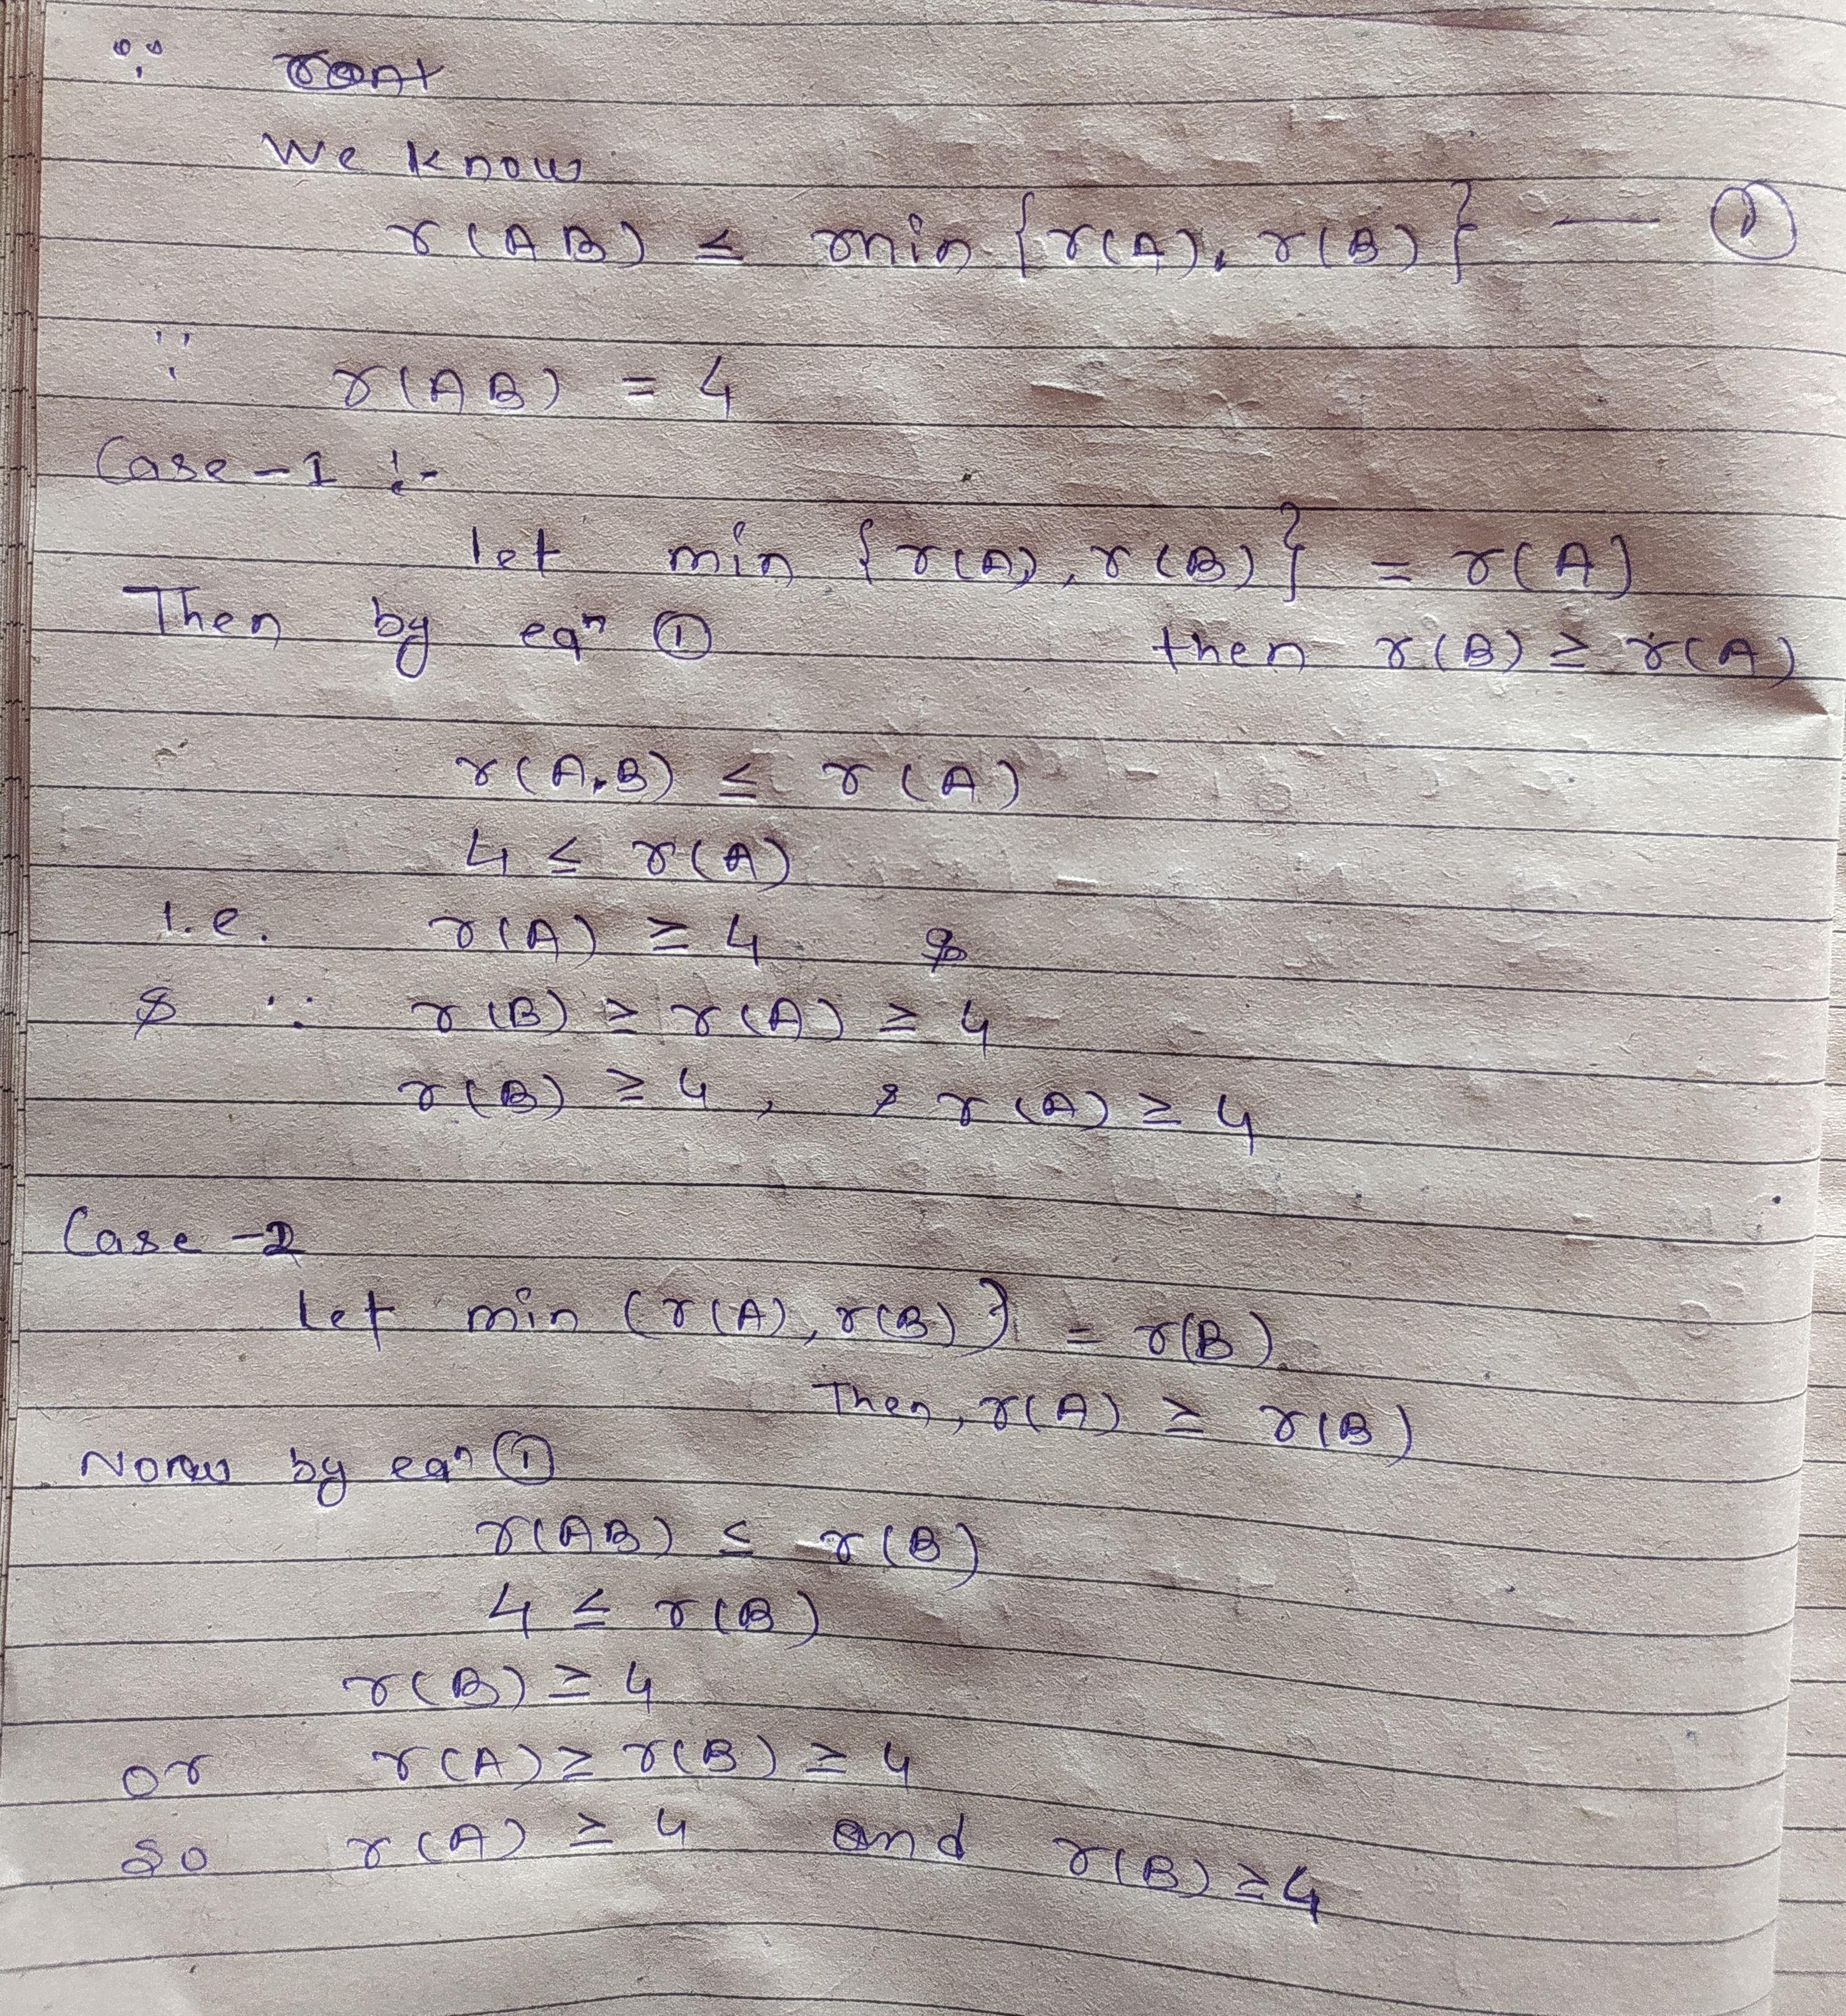 ∵
We know
r(AB) ≤ min {r(A), r(B)} — ①
∵ r(AB) = 4
Case-1 :-
let min {r(A), r(B)} = r(A)
Then by eqⁿ ① then r(B) ≥ r(A)
r(A.B) ≤ r(A)
4 ≤ r(A)
i.e. r(A) ≥ 4 &
& ∵ r(B) ≥ r(A) ≥ 4
r(B) ≥ 4, & r(A) ≥ 4
Case-2
Let min (r(A), r(B)} = r(B)
Then, r(A) ≥ r(B)
Now by eqⁿ ①
r(AB) ≤ r(B)
4 ≤ r(B)
r(B) ≥ 4
or r(A) ≥ r(B) ≥ 4
So r(A) ≥ 4 and r(B) ≥ 4